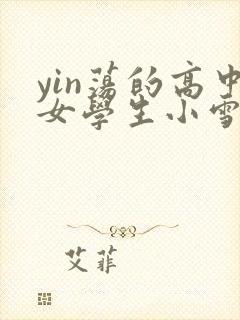 yin蕩的高中
女學生小雪
艾菲